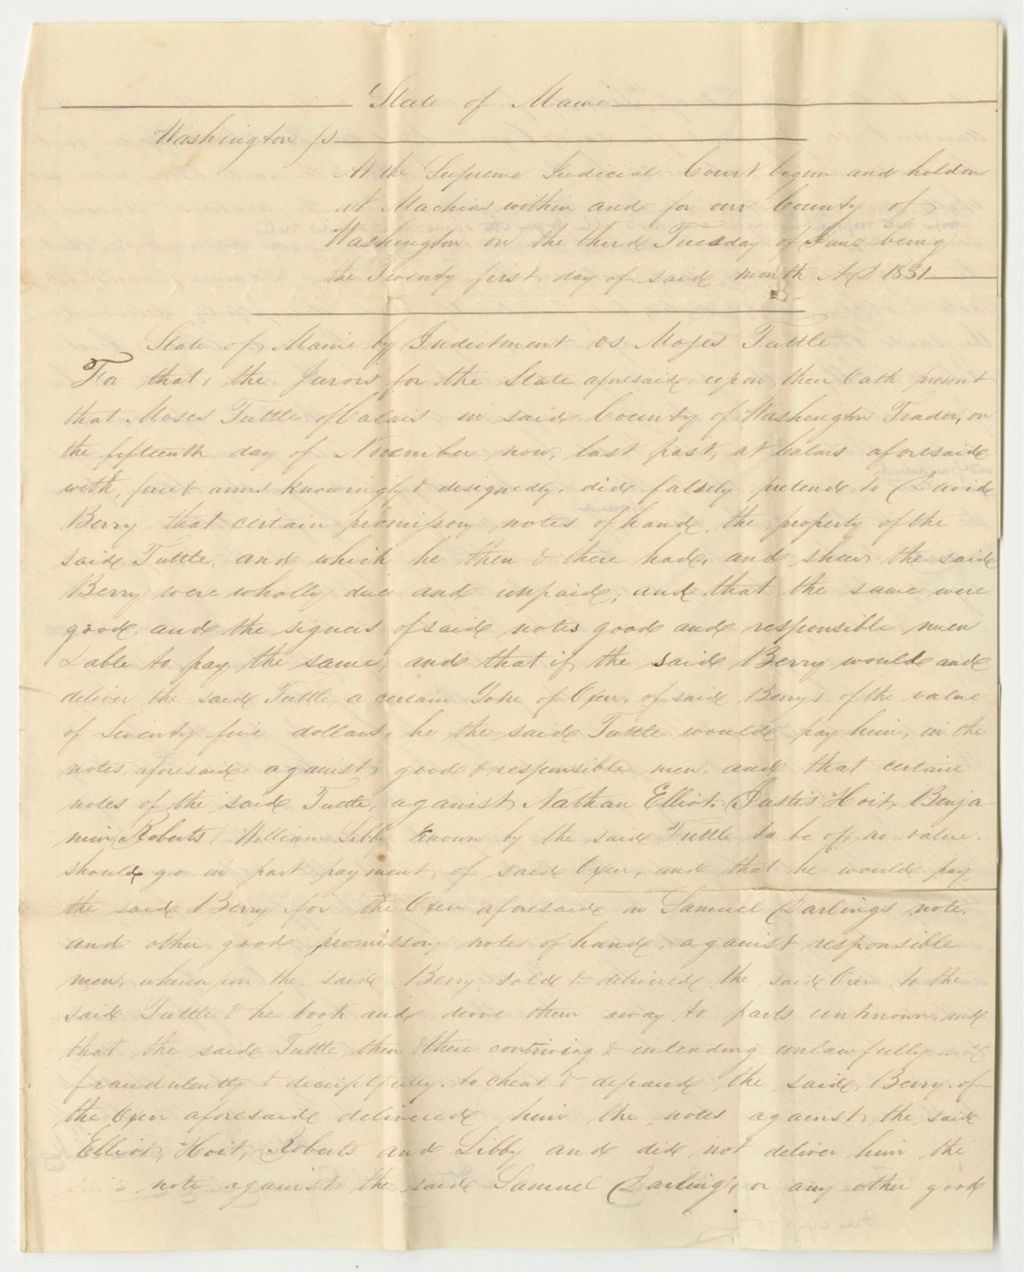 State of Maine
Washington ss
At the Supreme Judicial Court begun and holden
at Machias within and for our County of
Washington on the third Tuesday of June being
the Twenty first day of said month A.D. 1831
State of Maine by Indictment vs Moses Tuttle
For that, the Jurors for the State aforesaid, upon their Oath present
that Moses Tuttle of Calais in said County of Washington Trader, on
the fifteenth day of November now, last past, at Calais aforesaid
with, force & arms knowingly & designedly, did falsely pretend to David
Berry, that certain promissory notes of hand, the property of the
said Tuttle, and which he then & there had, and shew the said
Berry were wholly due and unpaid, and that the same were
good, and the signers of said notes good and responsible men
& able to pay the same, and that if the said Berry would and
deliver the said Tuttle a certain Yoke of Oxen, of said Berrys of the value
of Seventy five dollars, he the said Tuttle would pay him, in the
notes aforesaid against good & responsible men, and that certain
notes of the said Tuttle, against Nathan Elliot, Hoit, Benja-
min Roberts & William Libby known by the said Tuttle to be of no value.
should go in part payment, of said Oxen, and that he would pay
the said Berry for the Oxen aforesaid in Samuel Darlings note,
and other good promissory notes of hand, against responsible
men, whereupon the said Berry sold & delivered the said Oxen to the
said Tuttle & he took and drove them away to parts unknown, and
that the said Tuttle then & there contriving & intending unlawfully
fraudulently & deceiptfully to cheat & defraud the said Berry of
the Oxen aforesaid delivered him the notes against the said
Elliot, Hoit, Roberts and Libby and did not deliver him the
note against the said Samuel Darling, or any other good